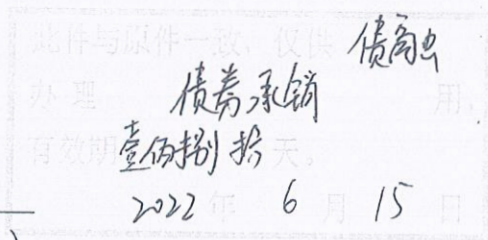 此件与原件一致,仅供 债融
办理 债券承销 用,
有效期 壹佰捌拾 天。
2022 年 6 月 15 日